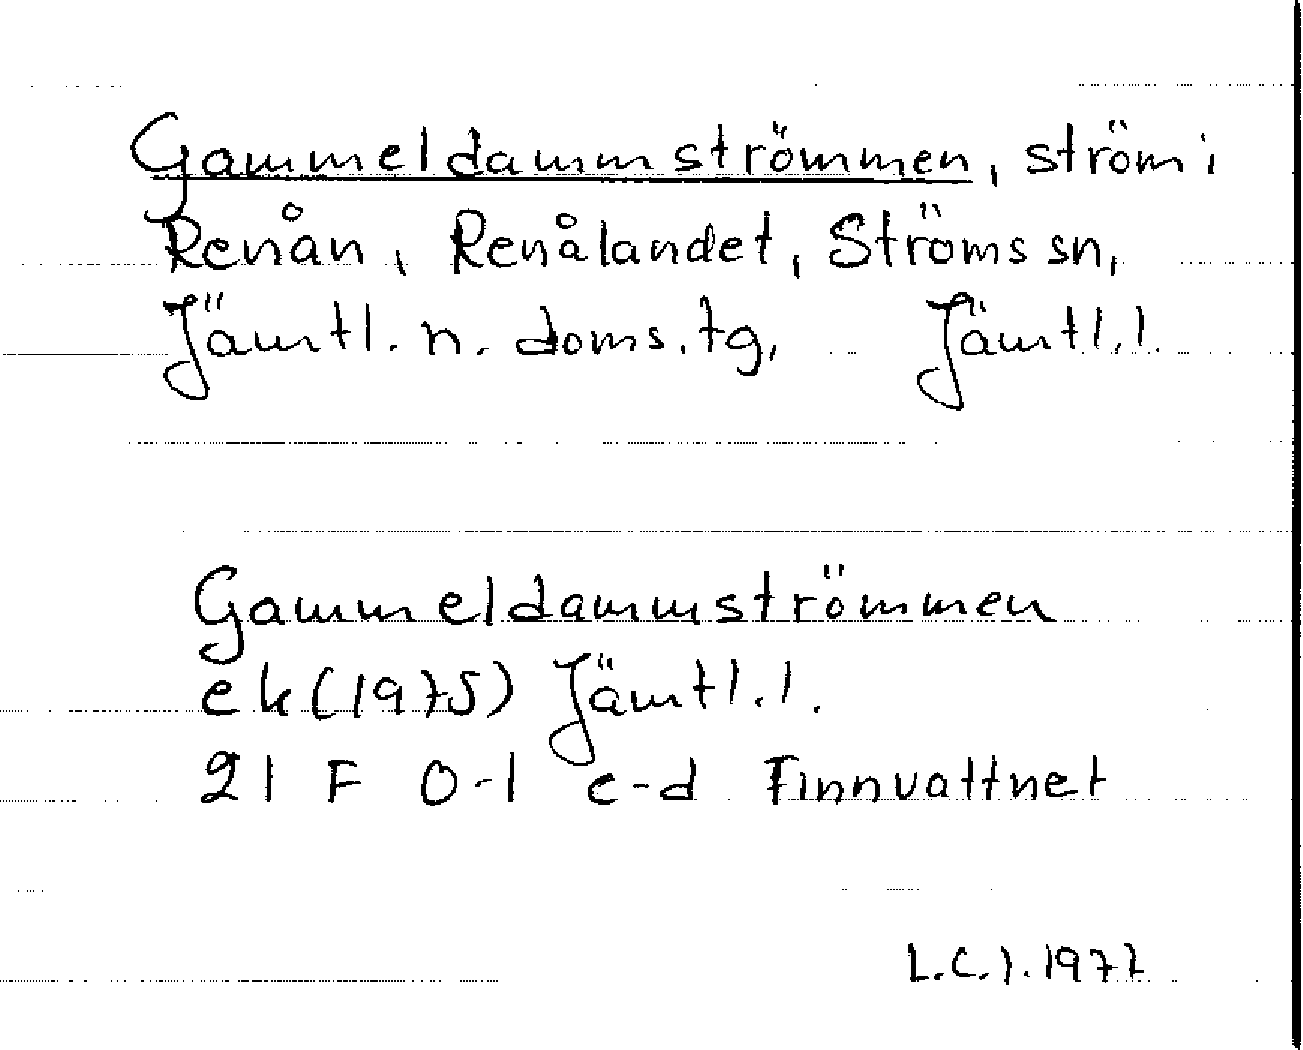 Gammeldammströmmen, ström i
Renån, Renålandet, Ströms sn,
Jämtl. n. doms. tg, Jämtl. l.
Gammeldammströmmen
ek (1975) Jämtl. l.
21 F 0-1 c-d Finnvattnet